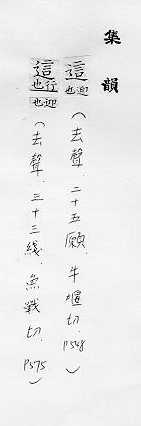 集韻
這迎也（去聲．二十五願．牛堰切．P548）
這行也迎也（去聲．三十三綫．魚戰切．P575）